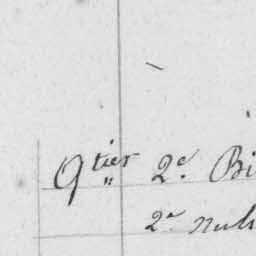 Qtier 2e. Bi
2e.